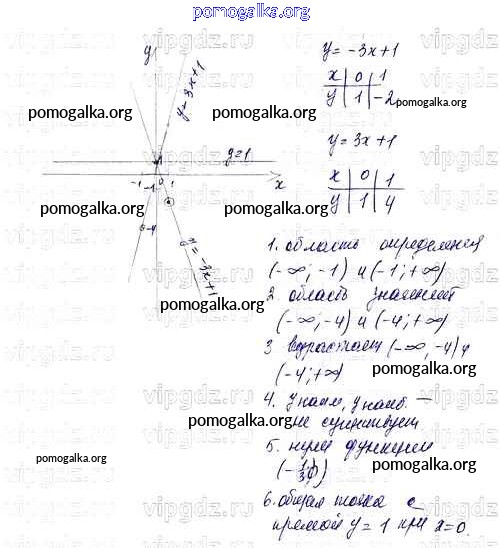 pomogalka.org
y
y = 3x+1
y=1
x
-1 0 1
-1
-4
y=-3x+1
y = -3x+1
x 0 1
y 1 -2
y = 3x+1
x 0 1
y 1 4
1. область определен
(-∞; -1) и (-1; +∞)
2 область значений
(-∞; -4) и (-4; +∞)
3 возрастает (-∞, -4) и
(-4; +∞)
4. y наим, y наиб. —
не существует
5. нули функции
6. общая точка с
прямой y = 1 при x=0.
pomogalka.org
pomogalka.org
pomogalka.org
pomogalka.org
pomogalka.org
pomogalka.org
pomogalka.org
pomogalka.org
pomogalka.org
pomogalka.org
vipgdz.ru